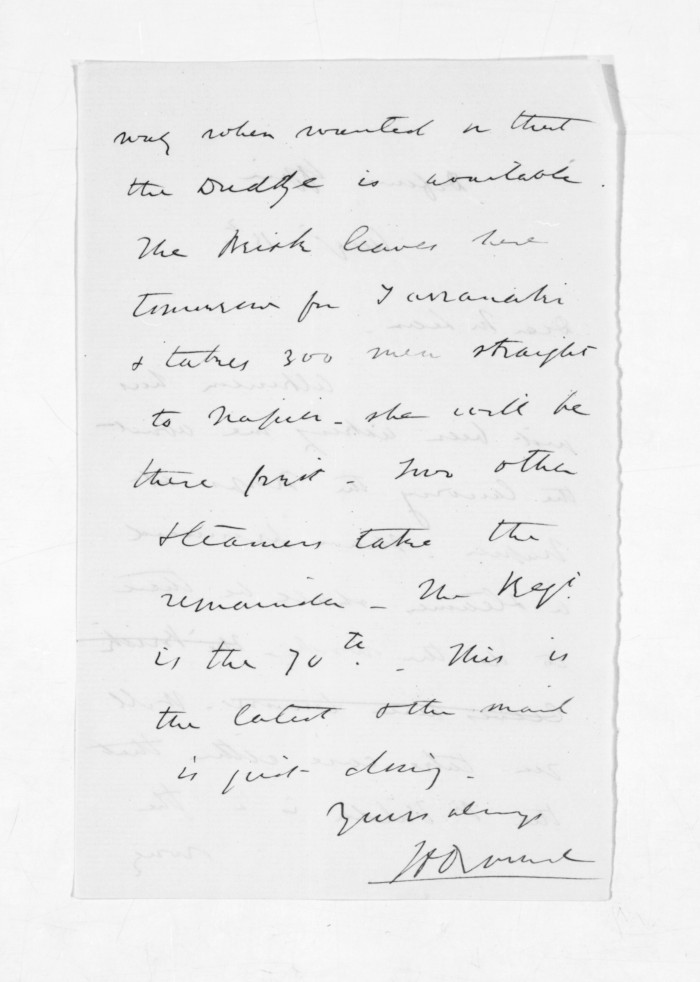 way when wanted or that
the Dredge is available.
The Brisk leaves here
tomorrow for Tarranaki
& takes 300 men straight
to Napier - she will be
there first - Two other
steamers take the
remainder - The Regt.
is the 70th. - This is
the latest & the mail
is just closing -
Yours always
JD Ormond